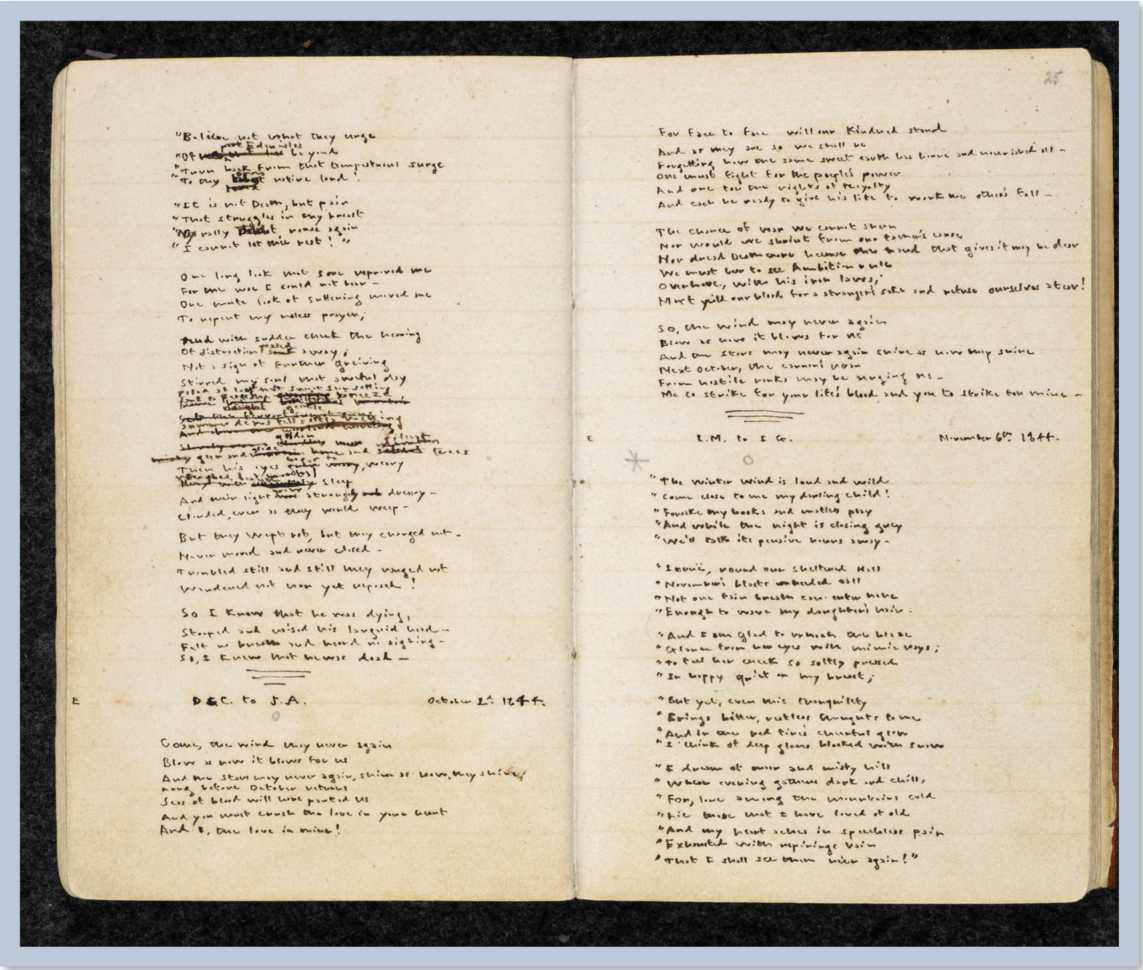 "Believe not what they urge
"Of Eden isles beyond
"Turn back from that tempestuous surge
"To thy native land.
"It is not Death, but pain
"That struggles in thy breast
"Nay rally rouse again
"I cannot let thee rest!"
One long look that sore reproved me
For the woe I could not bear -
One mute look of suffering moved me
To repent my useless prayer;
And with sudden check the heaving
Of distraction passed away;
Not a sign of further grieving
Stirred my soul that awful day
Then his eyes began to weary
sleep
And their light strangely dreary -
Clouded, even as they would weep -
But they wept not, but they changed not -
Never moved and never closed -
Troubled still and still they ranged not
Wandered not nor yet reposed!
So I knew that he was dying,
Stooped and raised his languid head -
Felt no breath and heard no sighing -
So, I knew that he was dead -
E
D.G.C. to J.A.
October 2d 1844.
Come, the wind may never again
Blow as now it blows for us
And the stars may never again, shine as now they shine;
Long before October returns
Seas of blood will have parted us
And you must crush the love in your heart
And I, the love in mine!
25
For face to face will our Kindred stand
And as they are so we shall be
Forgetting how the same sweet earth has borne and nourished all -
One must fight for the people's power
And one for the rights of royalty
And each be ready to give his life to work the other's fall -
The chance of war we cannot shun
Nor would we shrink from our father's cause
Nor dread Death more because the hand that gives it may be dear
We must bear to see Ambition rule
Over love, with his iron laws;
Must yield our blood for a stranger's sake and refuse ourselves a tear!
So, the wind may never again
Blow as now it blows for us
And the stars may never again shine as now they shine
Next October, the cannon's roar
From hostile ranks may be urging us -
Me to strike for your life's blood and you to strike for mine -
E
E.M. to E G.
November 6th 1844.
"The winter wind is loud and wild
"Come close to me my darling child!
"Forsake thy books and mateless play
"And while the night is closing grey
"We'll talk its pensive hours away -
"Iernë, round our sheltered Hall
"November's blasts unheeded call
"Not one faint breath can enter here
"Enough to wave my daughter's hair.
"And I am glad to watch the blaze
"Glance from her eyes with mimic rays;
"To feel her cheek so softly pressed
"In happy quiet on my breast;
"But yet, even this tranquility
"Brings bitter, restless thoughts to me
"And in the red fire's cheerful glow
"I think of deep glens blocked with snow
"I dream of moor and misty hill
"Where evening gathers dark and chill,
"For, lone among the mountains cold
"Lie those that I have loved of old
"And my heart aches in speechless pain
"Exhausted with repinings vain
"That I shall see them ne'er again!"